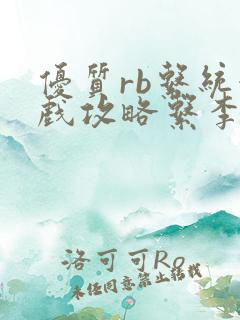 優質rb繫統
戲攻略繫李
洛可可Ro
未经同意禁止转载